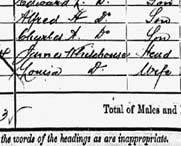 Edward L. Do Son
Alfred H. Do Son
Charles A. Do Son
James Whitehouse Head
Louisa Do Wife
Total of Males and
the words of the headings as are inappropriate.